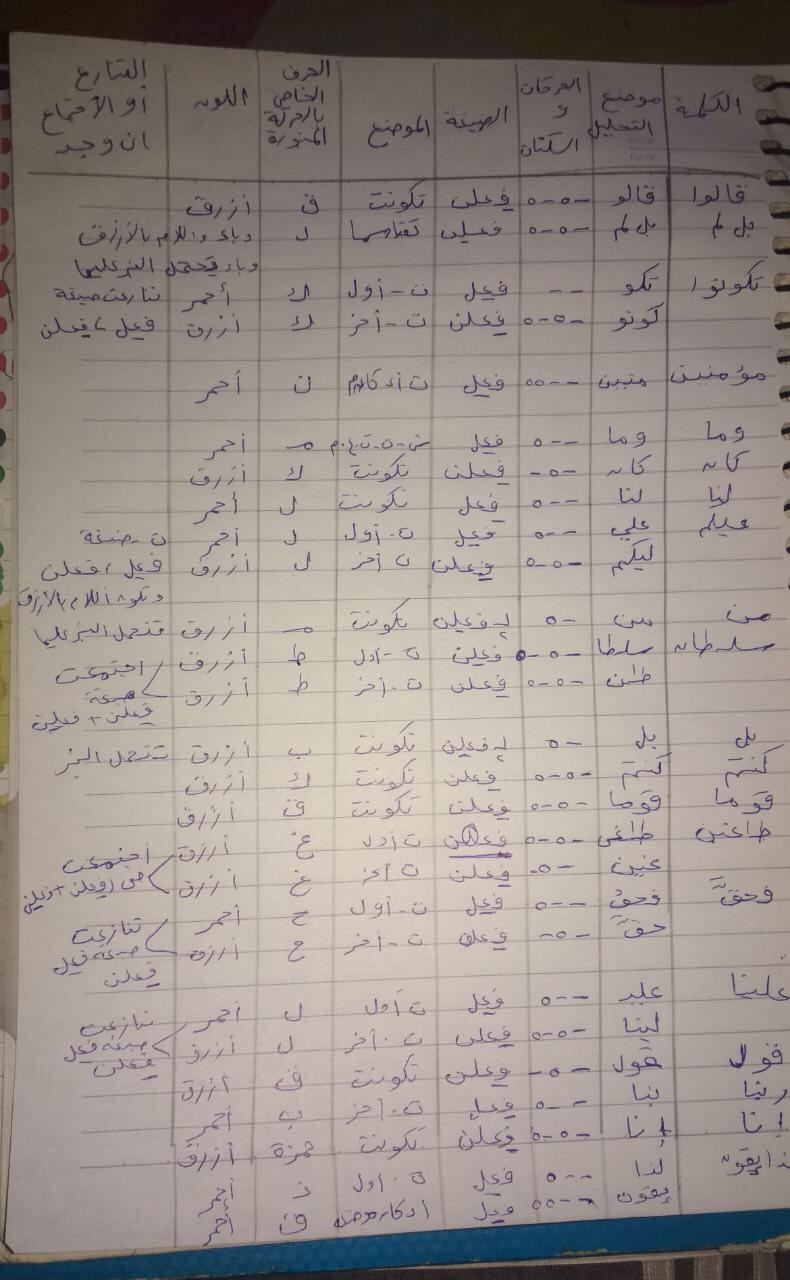 الكلمة موضع التحليل الحركات و السكنات الصيغة الموضع الحرف الخاص بالحركة المنورة اللون التنازع أو الاجتماع ان وجد
قالوا قالو ٥-٥-- فعلن تكونت ق أزرق
بل لم بل لم ٥-٥-- فعلن تقاسما ل وباء واللام بالأزرق
وباء تحمل النبر عليها
تكونوا تكو -- فعل ت-أول ك أحمر تنازعت صيغة
كونو ٥-٥-- فعلن ت-أخر ك أزرق فعل، فعلن
مؤمنين منين ٥٥-- فعل ن أحمر
وما وما ٥-- فعل م أحمر
كان كان -٥- فعلن تكونت ك أزرق
لنا لنا ٥-- فعل تكونت ل أحمر
عليكم علي ٥-- فعل ت.أول ل أحمر ت صيغة
ليكم ٥-٥- فعلن ت أخر ل أزرق فعل، فعلن
وتكون اللام بالأزرق
من من ٥- فعلن تكونت م أزرق فتحمل النبر عليها
سلطان سلطا ٥-٥- فعلن ت-أول ط أزرق اجتمعت
طان ٥-٥- فعلن ت.أخر ط أزرق صيغة
فعلن + فعلن
بل بل ٥- فعلن تكونت ب أزرق تتحمل النبر
كنتم كنتم ٥-٥- فعلن تكونت ك أزرق
قوما قوما ٥-٥- فعلن تكونت ق أزرق
طاغين طاغي ٥-٥- فعلن ت أول غ أزرق اجتمعت
غين -٥- فعلن ت أخر غ أزرق
فحقّ فحق ٥-- فعل ت-أول ح أحمر تنازعت
حقّ -٥- فعلن ت-أخر ح أزرق صيغة فعل
فعلن
علينا علي ٥-- فعل ت أول ل أحمر تنازعت
لينا ٥-٥- فعلن ت.أخر ل أزرق صيغة فعل
فعلن
قول قول -٥- فعلن تكونت ق أزرق
ربنا بنا ٥-- فعل ت.أخر ب أحمر
إنا إنا ٥-٥- فعلن تكونت همزة أزرق
٥-- فعل ت.اول ذ أحمر
٥٥-- فعل ق أحمر